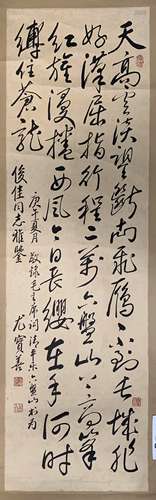 天高云淡望断南飞雁不到长城非
好汉屈指行程二万六盘山上高峰
红旗漫捲西风今日长缨在手何时
缚住苍龙
庚午夏月敬录毛主席词清平乐六盘山书为
俊佳同志雅鉴
尤宝善